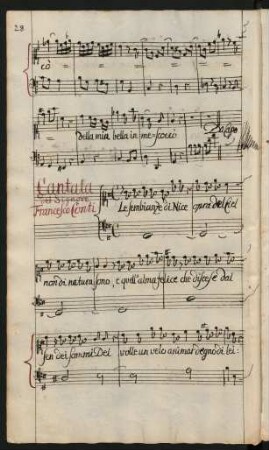 28
cò
della mia bella in me scoccò
Da Capo
Cantata
Del Signore
Francesco Conti
Le sembianze di Nice opra del Ciel
non di natura sono, e quell'alma felice che discese dal
sen dei sommi Dei volle un velo animar degno di lei